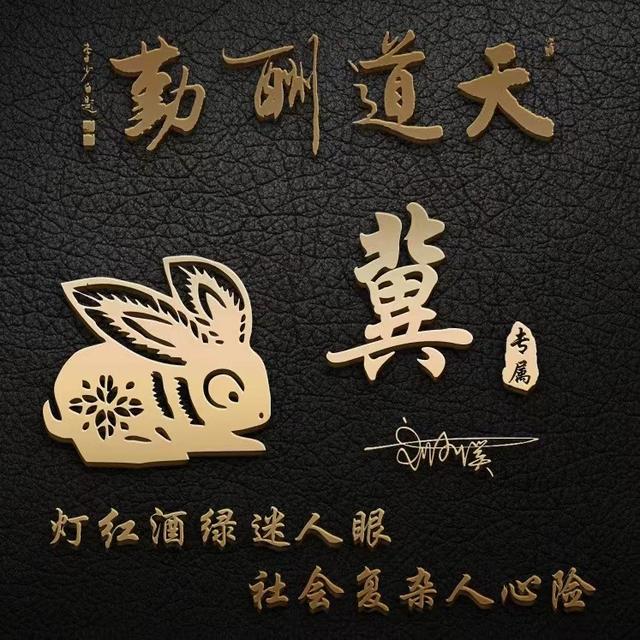 天道酬勤
冀
专属
灯红酒绿迷人眼
社会复杂人心险